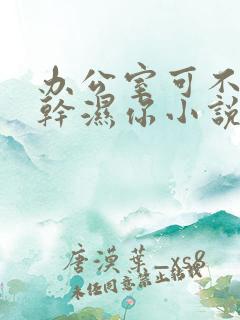 办公室可不
幹濕你小説
唐漠葉_xs8
未经同意禁止转载